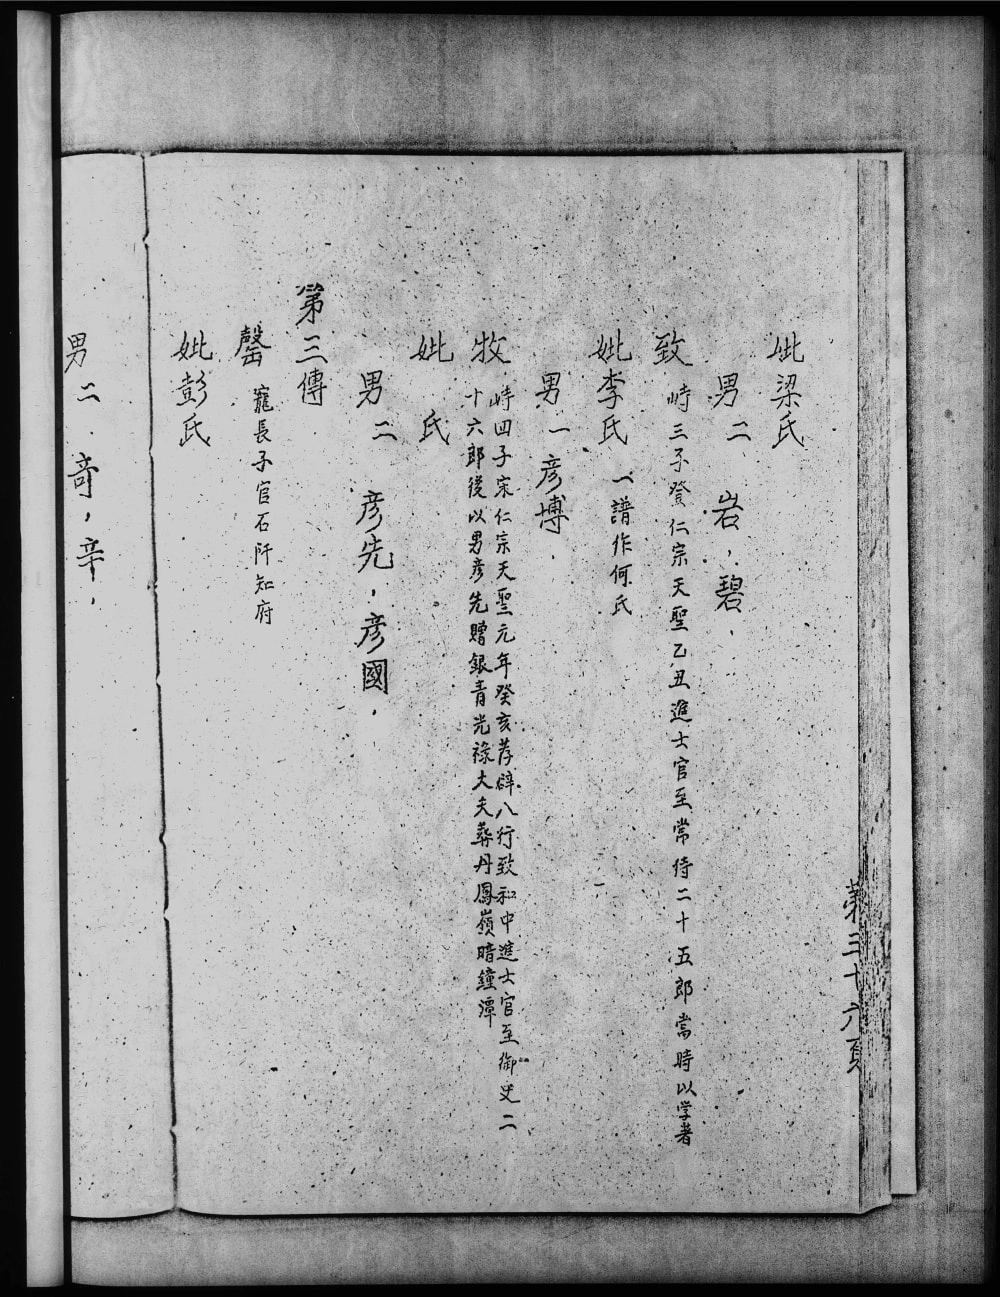 第三十六頁
妣梁氏
男二 岩，碧，
致 峙三子登仁宗天聖乙丑進士官至常侍二十五郎當時以学者
妣李氏 一譜作何氏
男一彦博，
牧 峙四子宋仁宗天聖元年癸亥荐辟八行致和中進士官至御史二
十六郎後以男彦先贈銀青光祿大夫葬丹鳳嶺暗鐘潭
妣 氏
男二 彦先，彦國，
第三傳
罄 寵長子官石阡知府
妣彭氏
男二 奇，辛，